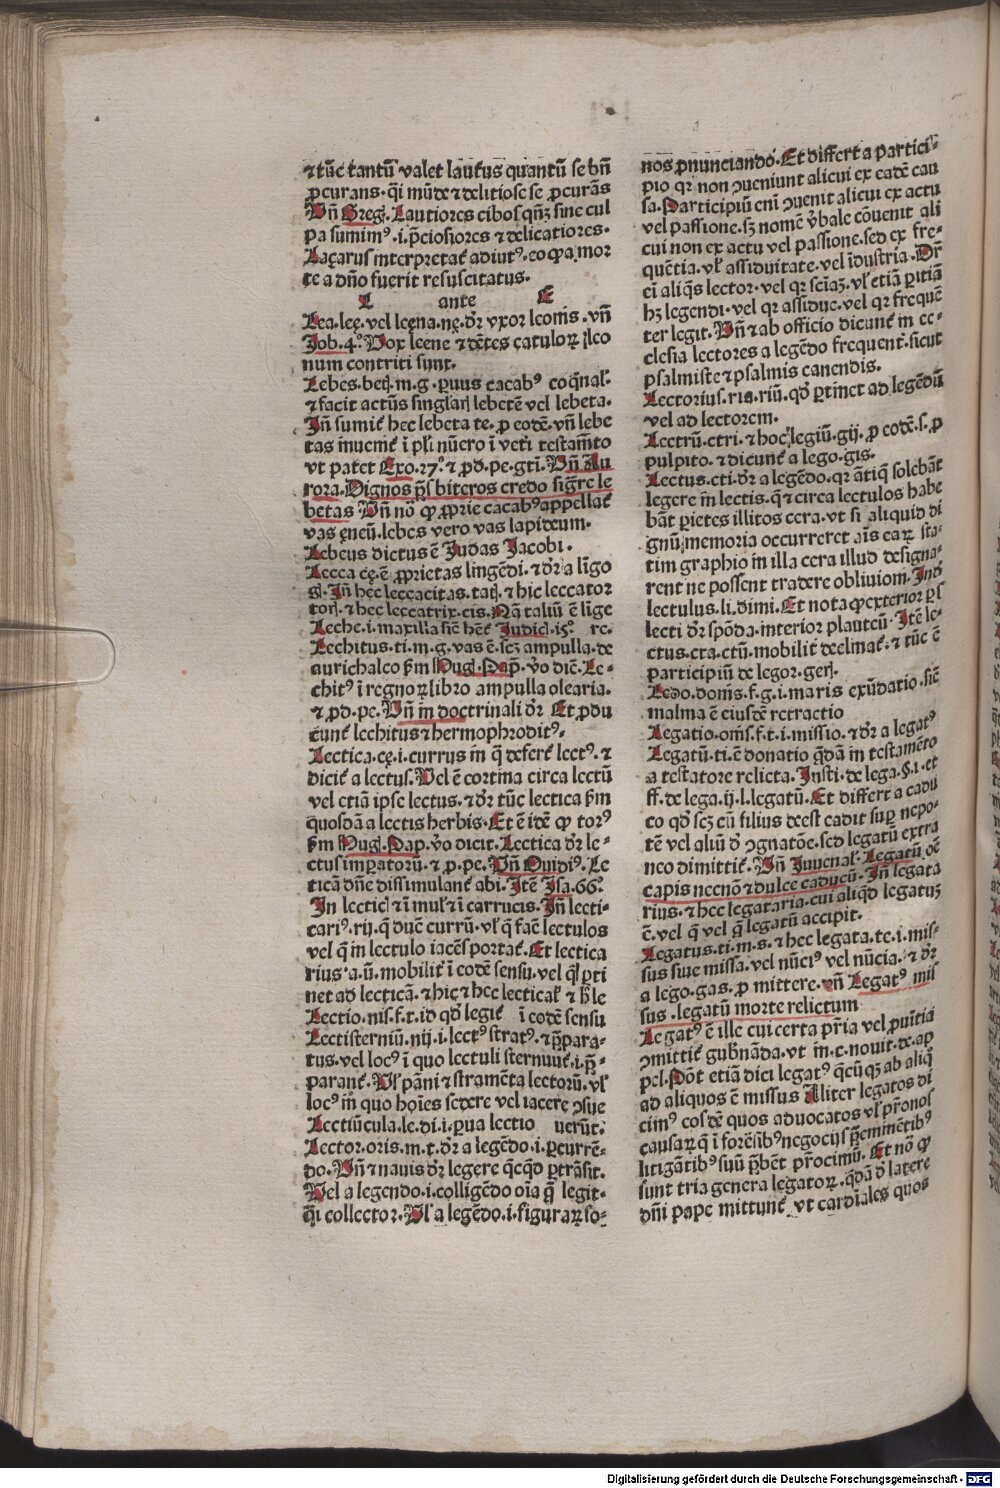 ⁊ tūc tantū valet lautus quantū se bn̄
ꝓcurans. q̄i mūde ⁊ delitiose se ꝓcurās
Vn̄ Greg. Lautiores cibos qn̄ꝫ sine cul
pa sumimꝰ .i. p̄ciosiores ⁊ delicatiores.
Laçarus interpretat̄ adiutꝰ. eo ꝙ a mor
te a dn̄o fuerit resuscitatus.
L ante E
Lea. leę. vel leęna. nę. dr̄ vxor leonis. vn̄
Job. 4.° Vox leene ⁊ dētes catuloꝝ leo
num contriti sunt.
Lebes. betꝭ. m. g. puus cacabꝰ coq̄nal'.
⁊ facit actūs singl'arꝭ lebetē vel lebeta.
In̄ sumit̄ hec lebeta te. ꝓ eodē. vn̄ lebe
tas inuenit̄ ī pl'i nūero ī vet'i testam̄to
vt patet Exo. 27.° ⁊ ꝓd. pe. gtī. Vn̄ Au
rora. Dignos p̄sbiteros credo sigr̄e le
betas Vn̄ nō ꝙ ꝓprie cacabꝰ appellat̄
vas ęneū. lebes vero vas lapideum.
Lebeus dictus ē Judas Jacobi.
Lecca cę. ē ꝓprietas lingēdi. ⁊ dr̄ a līgo
gꝭ. In̄ hec leccacitas. tatꝭ. ⁊ hic leccator
torꝭ. ⁊ hec leccatrix. cis. Nā̄ taliū ē līge
Leche. i. maxilla sic̄ het̄ Judicꝭ. 15.° re.
Lechitus. ti. m. g. vas ē. scꝫ ampulla. de
aurichalco ẜm Hug. Pap. ꝟo dic̄. Le-
chitꝰ ī regnoꝝ libro ampulla olearia.
⁊ ꝓd. pe. Vn̄ in doctrinali dr̄ Et ꝓdu
cunt̄ lechitus ⁊ hermophroditꝰ.
Lectica. cę. i. currus in q̄ defert̄ lectꝰ. ⁊
dicit̄ a lectus. Vel ē cortina circa lectū
vel etiā ipse lectus. ⁊ dr̄ tūc lectica ẜm
quosdā a lectis herbis. Et ē idē ꝙ torꝰ
ẜm Hug. Pap. ꝟo dicit. Lectica dr̄ le-
ctus imꝑatorū. ⁊ ꝓ. pe. Vn̄ Ouidiꝰ. Le
ticā dn̄e dissimulant̄ abi. Itē Isa. 66.°
In lecticꝭ ⁊ ī mul' ⁊ ī carrucis. In̄ lecti-
cariꝰ. rij. q̄ duc̄ currū. vl' q̄ fac̄ lectulos
vel q̄ in lectulo iacēs portat̄. Et lectica
rius. a. ū. mobilit̄ ī eodē sensu. vel qꝭ ꝑti
net ad lecticā. ⁊ hic ⁊ hec lectical' ⁊ hͦ le
Lectio. nis. f. t. id qd̓ legit̄ ī eodē sensu
Lectisterniū. nij. i. lectꝰ stratꝰ. ⁊ p̄para-
tus. vel locꝰ ī quo lectuli sternunt̄. i. p̄-
parant̄. Vl' pāni ⁊ stramēta lectorū. vl'
locꝰ in quo hoīes sedere vel iacere ↄsue
Lectiūcula. le. di. i. ꝑua lectio uerūt.
Lector. oris. m. t. dr̄ a legēdo. i. ꝑcurrē-
do. Vn̄ ⁊ nauis dr̄ legere qc̄qd̓ ꝑtrāsit.
Vel a legendo. i. colligēdo oīa q̄ legit.
q̄i collector. Vl' a legēdo. i. figuraꝝ so-
nos ꝓnunciando. Et differt a partici-
pio qꝛ non ↄueniunt alicui ex eadē cau
sa. Participiū eni ↄuenit alicui ex actu
vel passione. sꝫ nomē ꝟbale cōuenit ali
cui non ex actu vel passione. sed ex fre-
quētia. vl' assiduitate. vel īdustria. Dr̄
ei aliq̄s lector. vel qꝛ sciāꝫ. vl' etiā ꝑitiā
hꝫ legendi. vel qꝛ assidue. vel qꝛ frequē
ter legit. Vn̄ ⁊ ab officio dicunt̄ in ec-
clesia lectores a legēdo frequent̄. sicut
psalmiste ⁊ psalmis canendis.
Lectorius. ris. riū. qd̓ ꝑtinet ad legēdū
vel ad lectorem.
Lectrū. ctri. ⁊ hoc legiū. gij. ꝓ eodē. s. ꝓ
pulpito. ⁊ dicunt̄ a lego. gis.
Lectus. cti. dr̄ a legēdo. qꝛ ātiq̄ solebāt
legere in lectis. q̄ ⁊ circa lectulos habe
bāt ꝑietes illitos cera. vt si aliquid di
gnū memoria occurreret aīs eaꝝ sta-
tim graphio in illa cera illud designa-
rent ne possent tradere obliuioni. Ind̓
lectulus. li. dimi. Et nota ꝙ exterior ꝑs
lecti dr̄ spōda. interior plauteū. Itē le-
ctus. cta. ctū. mobilit̄ declinat̄. ⁊ tūc ē
participiū de legor. gerꝭ.
Ledo. donis. f. g. i. maris exūdatio. sic̄
malina ē eiusdē retractio
Legatio. onis. f. t. i. missio. ⁊ dr̄ a legatꝰ
Legatū. ti. ē donatio q̄dā in testamēto
a testatore relicta. Insti. de lega. §. i. et
ff. de lega. ij. l. legatū. Et differt a cadu
co qd̓ scꝫ cū filius deest cadit suꝑ nepo-
tē vel aliū d̓ ↄgnatōe. sed legatū extra
neo dimittit̄. Vn̄ Juuenal'. Legatū oē
capis necnō ⁊ dulce caducū. In̄ legata
rius. ⁊ hec legataria. cui aliqd̓ legatuꝫ
ē. vel q̄ vel q̄ legatū accipit.
Legatus. ti. m. s. ⁊ hec legata. te. i. mis-
sus siue missa. vel nūciꝰ vel nūcia. ⁊ dr̄
a lego. gas. ꝓ mittere. vn̄ Legatꝰ mis
sus. legatū morte relictum
Legatꝰ ē ille cui certa pr̄ia vel ꝓuītia
ↄmittit̄ gub̄nāda. vt in. c. nouit. de. ap
pel. Pōt etiā dici legatꝰ q̄cūqꝫ ab aliq̄
ad aliquos ē missus Aliter legatos di
cimꝰ eosdē quos aduocatos vl' pr̄onos
causaꝝ q̄ ī forēsibꝰ negocijs p̄eminētibꝰ
litigātibꝰ suū p̄bēt pr̄ociniū. Et nō ꝙ
sunt tria genera legatoꝝ. q̄dā d̓ latere
dn̄i pape mittunt̄. vt cardīales quos
Digitalisierung gefördert durch die Deutsche Forschungsgemeinschaft - DFG